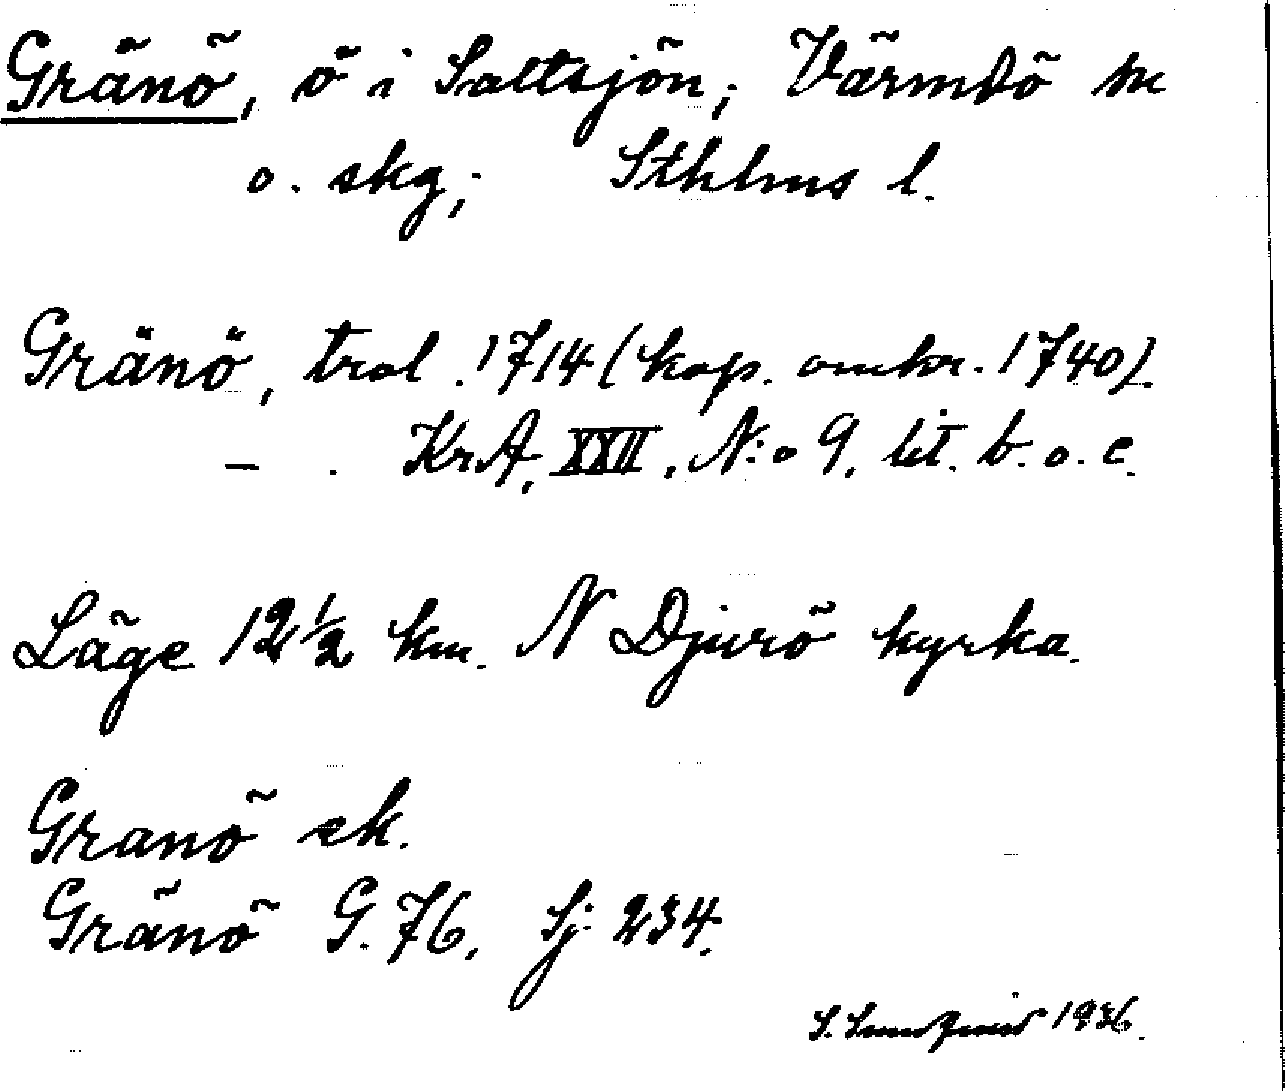 Gränö, ö i Saltsjön; Värmdö sn
o. skg; Sthlms l.
Gränö, trol. 1714 (kop. omkr. 1740).
— . KrA, XXII, N:o 9, lit. b. o. c.
Läge 12½ km. N Djurö kyrka.
Granö ek.
Gränö G. 76. Sj. 234.
S. 1936.